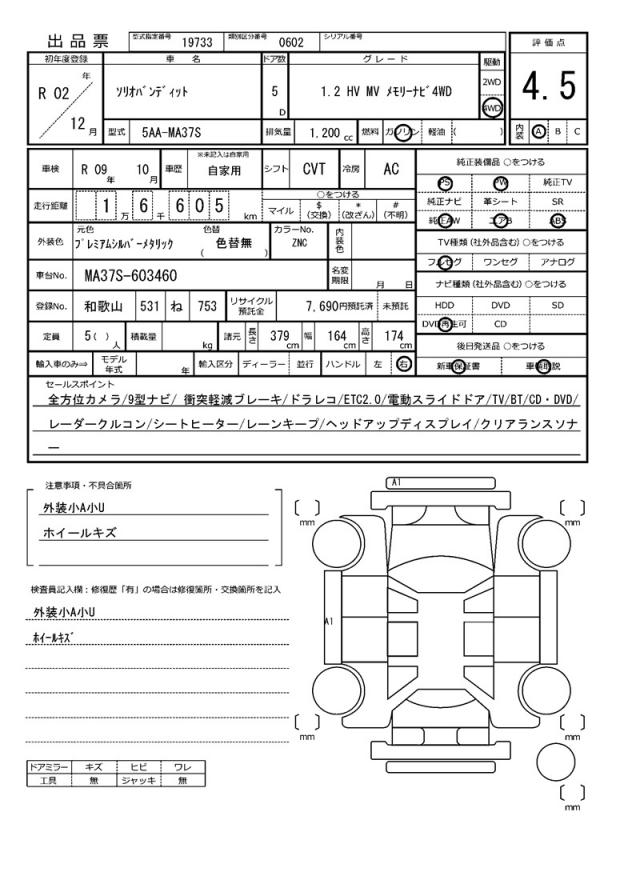 出品票 型式指定番号 19733 類別区分番号 0602 シリアル番号
評価点
4.5
初年度登録 車名 ドア数 グレード 駆動
R 02 年 12 月
ソリオバンディット 5 D 1.2 HV MV メモリーナビ4WD
2WD
4WD
型式 5AA-MA37S 排気量 1.200 cc 燃料 ガソリン 軽油 ( )
内装 A B C
車検 R 09 年 10 月 車歴 ※未記入は自家用 自家用 シフト CVT 冷房 AC
純正装備品 ○をつける
PS PW 純正TV
純正ナビ 革シート SR
純正AW エアB ABS
走行距離 1 万 6 千 6 0 5 km
○をつける
マイル $(交換) *(改ざん) #(不明)
外装色 元色 プレミアムシルバーメタリック 色替 ( 色替無 ) カラーNo. ZNC 内装色
TV種類 (社外品含む) ○をつける
フルセグ ワンセグ アナログ
車台No. MA37S-603460 名変期限 月 日
ナビ種類 (社外品含む) ○をつける
HDD DVD SD
DVD再生可 CD
登録No. 和歌山 531 ね 753 リサイクル預託金 7,690円預託済 未預託
定員 5( ) 人 積載量 kg 諸元 長さ 379 cm 幅 164 cm 高さ 174 cm
後日発送品 ○をつける
新車保証書 車輌取説
輸入車のみ⇒ モデル年式 年 輸入区分 ディーラー 並行 ハンドル 左 右
セールスポイント
全方位カメラ/9型ナビ/ 衝突軽減ブレーキ/ドラレコ/ETC2.0/電動スライドドア/TV/BT/CD・DVD/
レーダークルコン/シートヒーター/レーンキープ/ヘッドアップディスプレイ/クリアランスソナ
ー
注意事項・不具合箇所
外装小A小U
ホイールキズ
検査員記入欄：修復歴「有」の場合は修復箇所・交換箇所を記入
外装小A小U
ホイールキズ
ドアミラー キズ ヒビ ワレ
工具 無 ジャッキ 無
A1
[ ] mm
[ ] mm
A1
[ ] mm
[ ] mm
[ ] mm